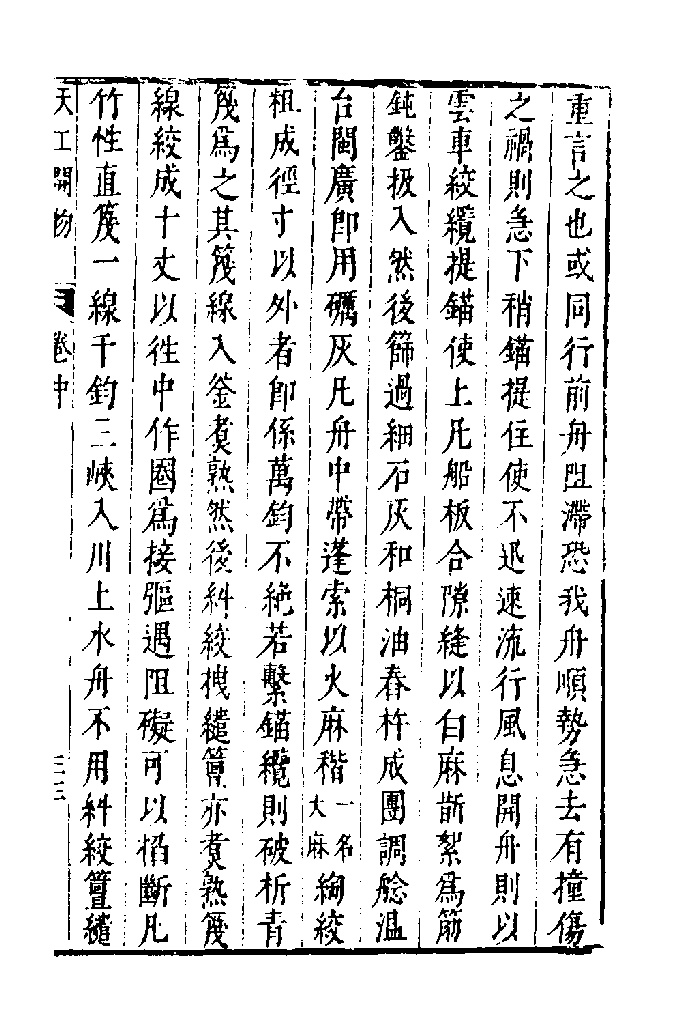 重言之也或同行前舟阻滯恐我舟順勢急去有撞傷
之禍則急下稍錨提住使不迅速流行風息開舟則以
雲車絞纜提錨使上凡船板合隙縫以白麻斮絮為筋
鈍鑿扱入然後篩過細石灰和桐油舂杵成團調艌溫
台閩廣即用礪灰凡舟中帶蓬索以火麻稭一名大麻綯絞
粗成徑寸以外者即係萬鈞不絶若繫錨纜則破析青
篾為之其篾線入釜煑熟然後糾絞拽䌫簟亦煑熟篾
線絞成十丈以徃中作圈為接彄遇阻礙可以掐斷凡
竹性直篾一線千鈞三峽入川上水舟不用糾絞簟䌫
天工開物 卷中 三三